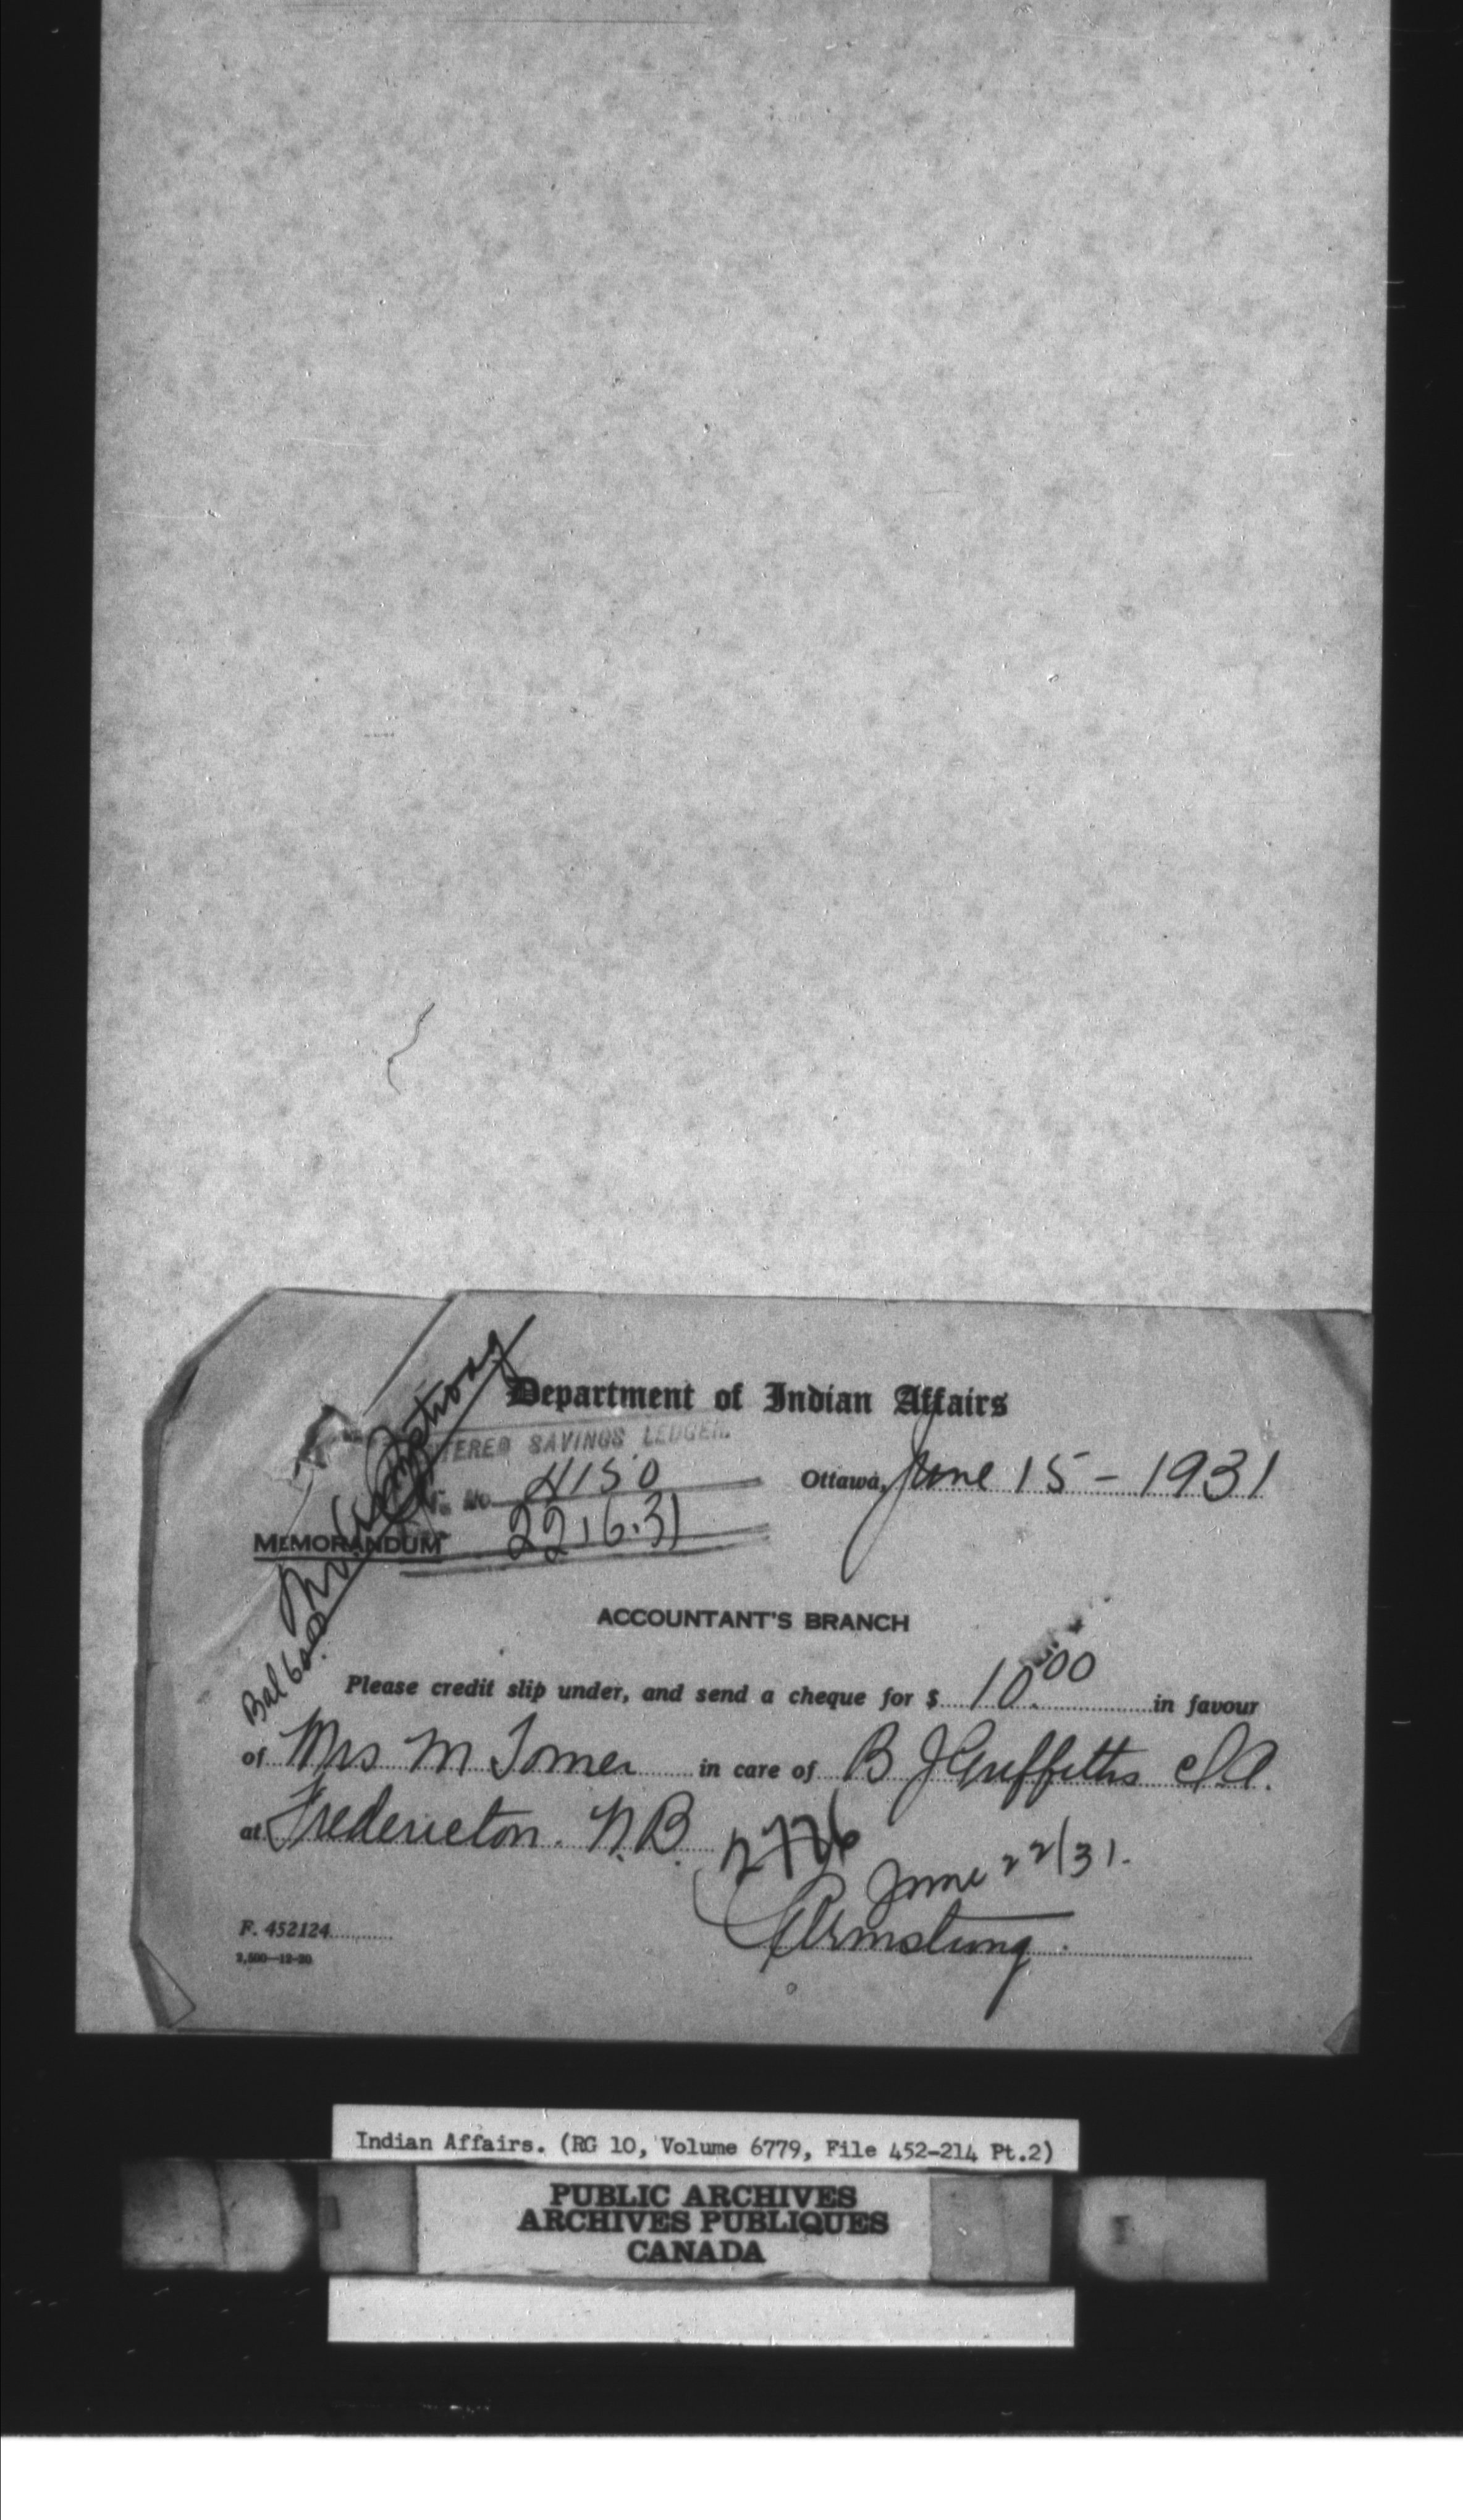 Department of Indian Affairs
TERED SAVINGS LEDGER.
No 4150
Ottawa, June 15 - 1931
MEMORANDUM 22.6.31
ACCOUNTANT'S BRANCH
Bal
Please credit slip under, and send a cheque for $ 10.00 in favour
of Mrs M Tomer in care of B J Griffiths I.A.
at Fredericton. N.B.
2776
June 22/31.
Armstrong
F. 452124
2,500—12-20
Indian Affairs. (RG 10, Volume 6779, File 452-214 Pt.2)
PUBLIC ARCHIVES
ARCHIVES PUBLIQUES
CANADA